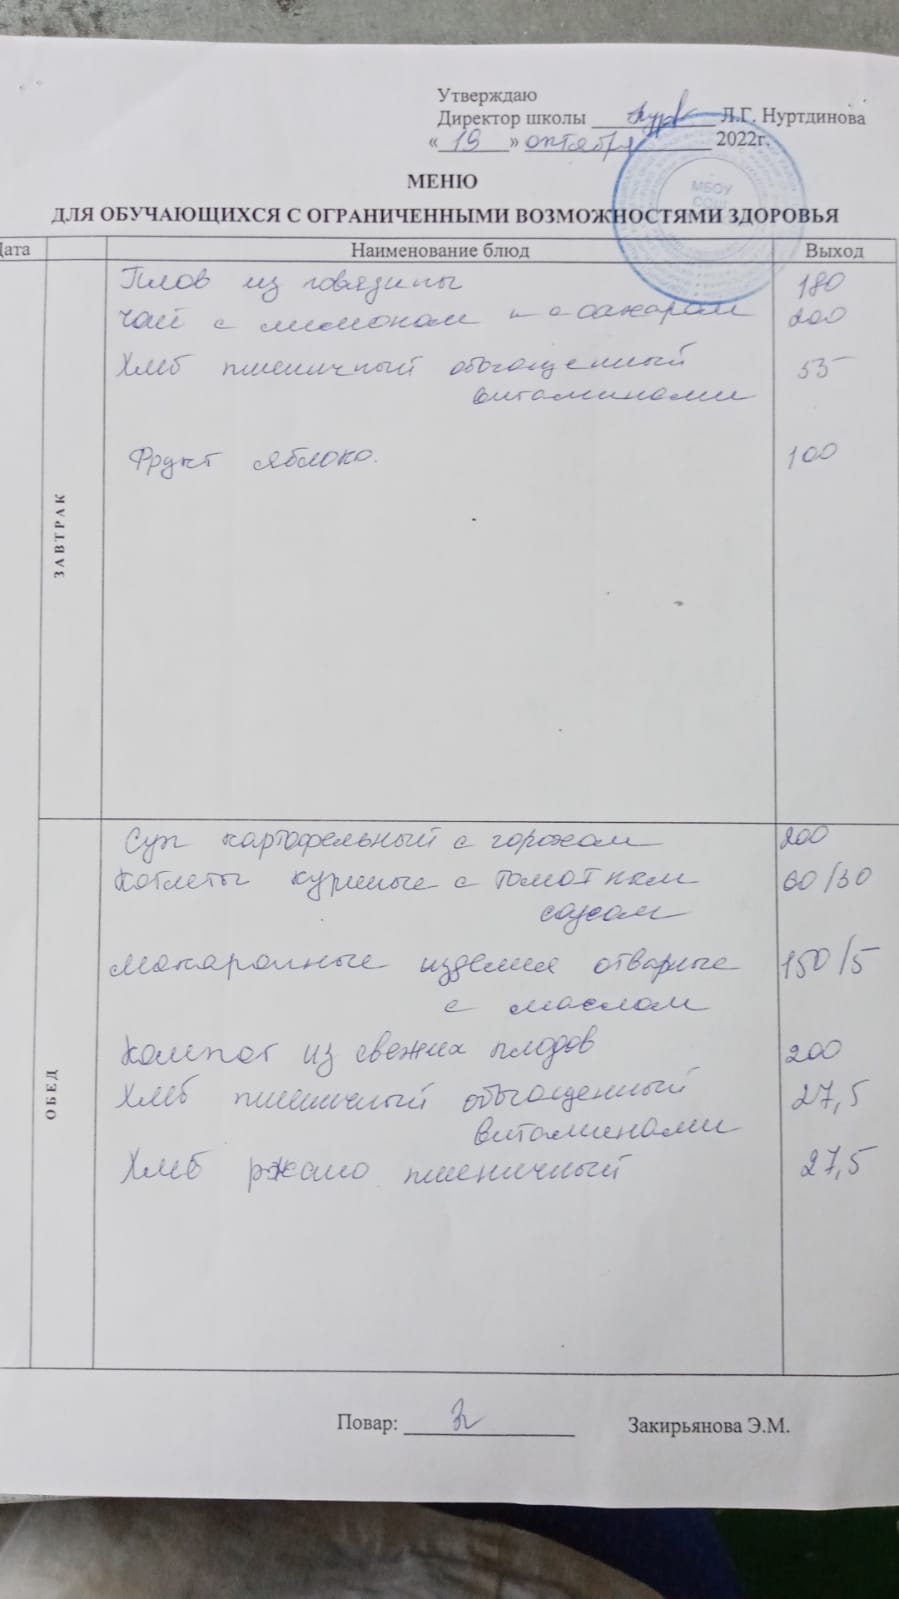 Утверждаю
Директор школы Л.Г. Нуртдинова
«19» октября 2022г.
МЕНЮ
ДЛЯ ОБУЧАЮЩИХСЯ С ОГРАНИЧЕННЫМИ ВОЗМОЖНОСТЯМИ ЗДОРОВЬЯ
Дата Наименование блюд Выход
МБОУ
СОШ
ЗАВТРАК
Плов из говядины 180
Чай с лимоном и с сахаром 200
Хлеб пшеничный обогащенный 55
витаминами
Фрукт яблоко. 100
ОБЕД
Суп картофельный с горохом 200
Котлеты куриные с томатным 60/30
соусом
Макаронные изделия отварные 150/5
с маслом
Компот из свежих плодов 200
Хлеб пшеничный обогащенный 27,5
витаминами
Хлеб ржано пшеничный 27,5
Повар: Закирьянова Э.М.